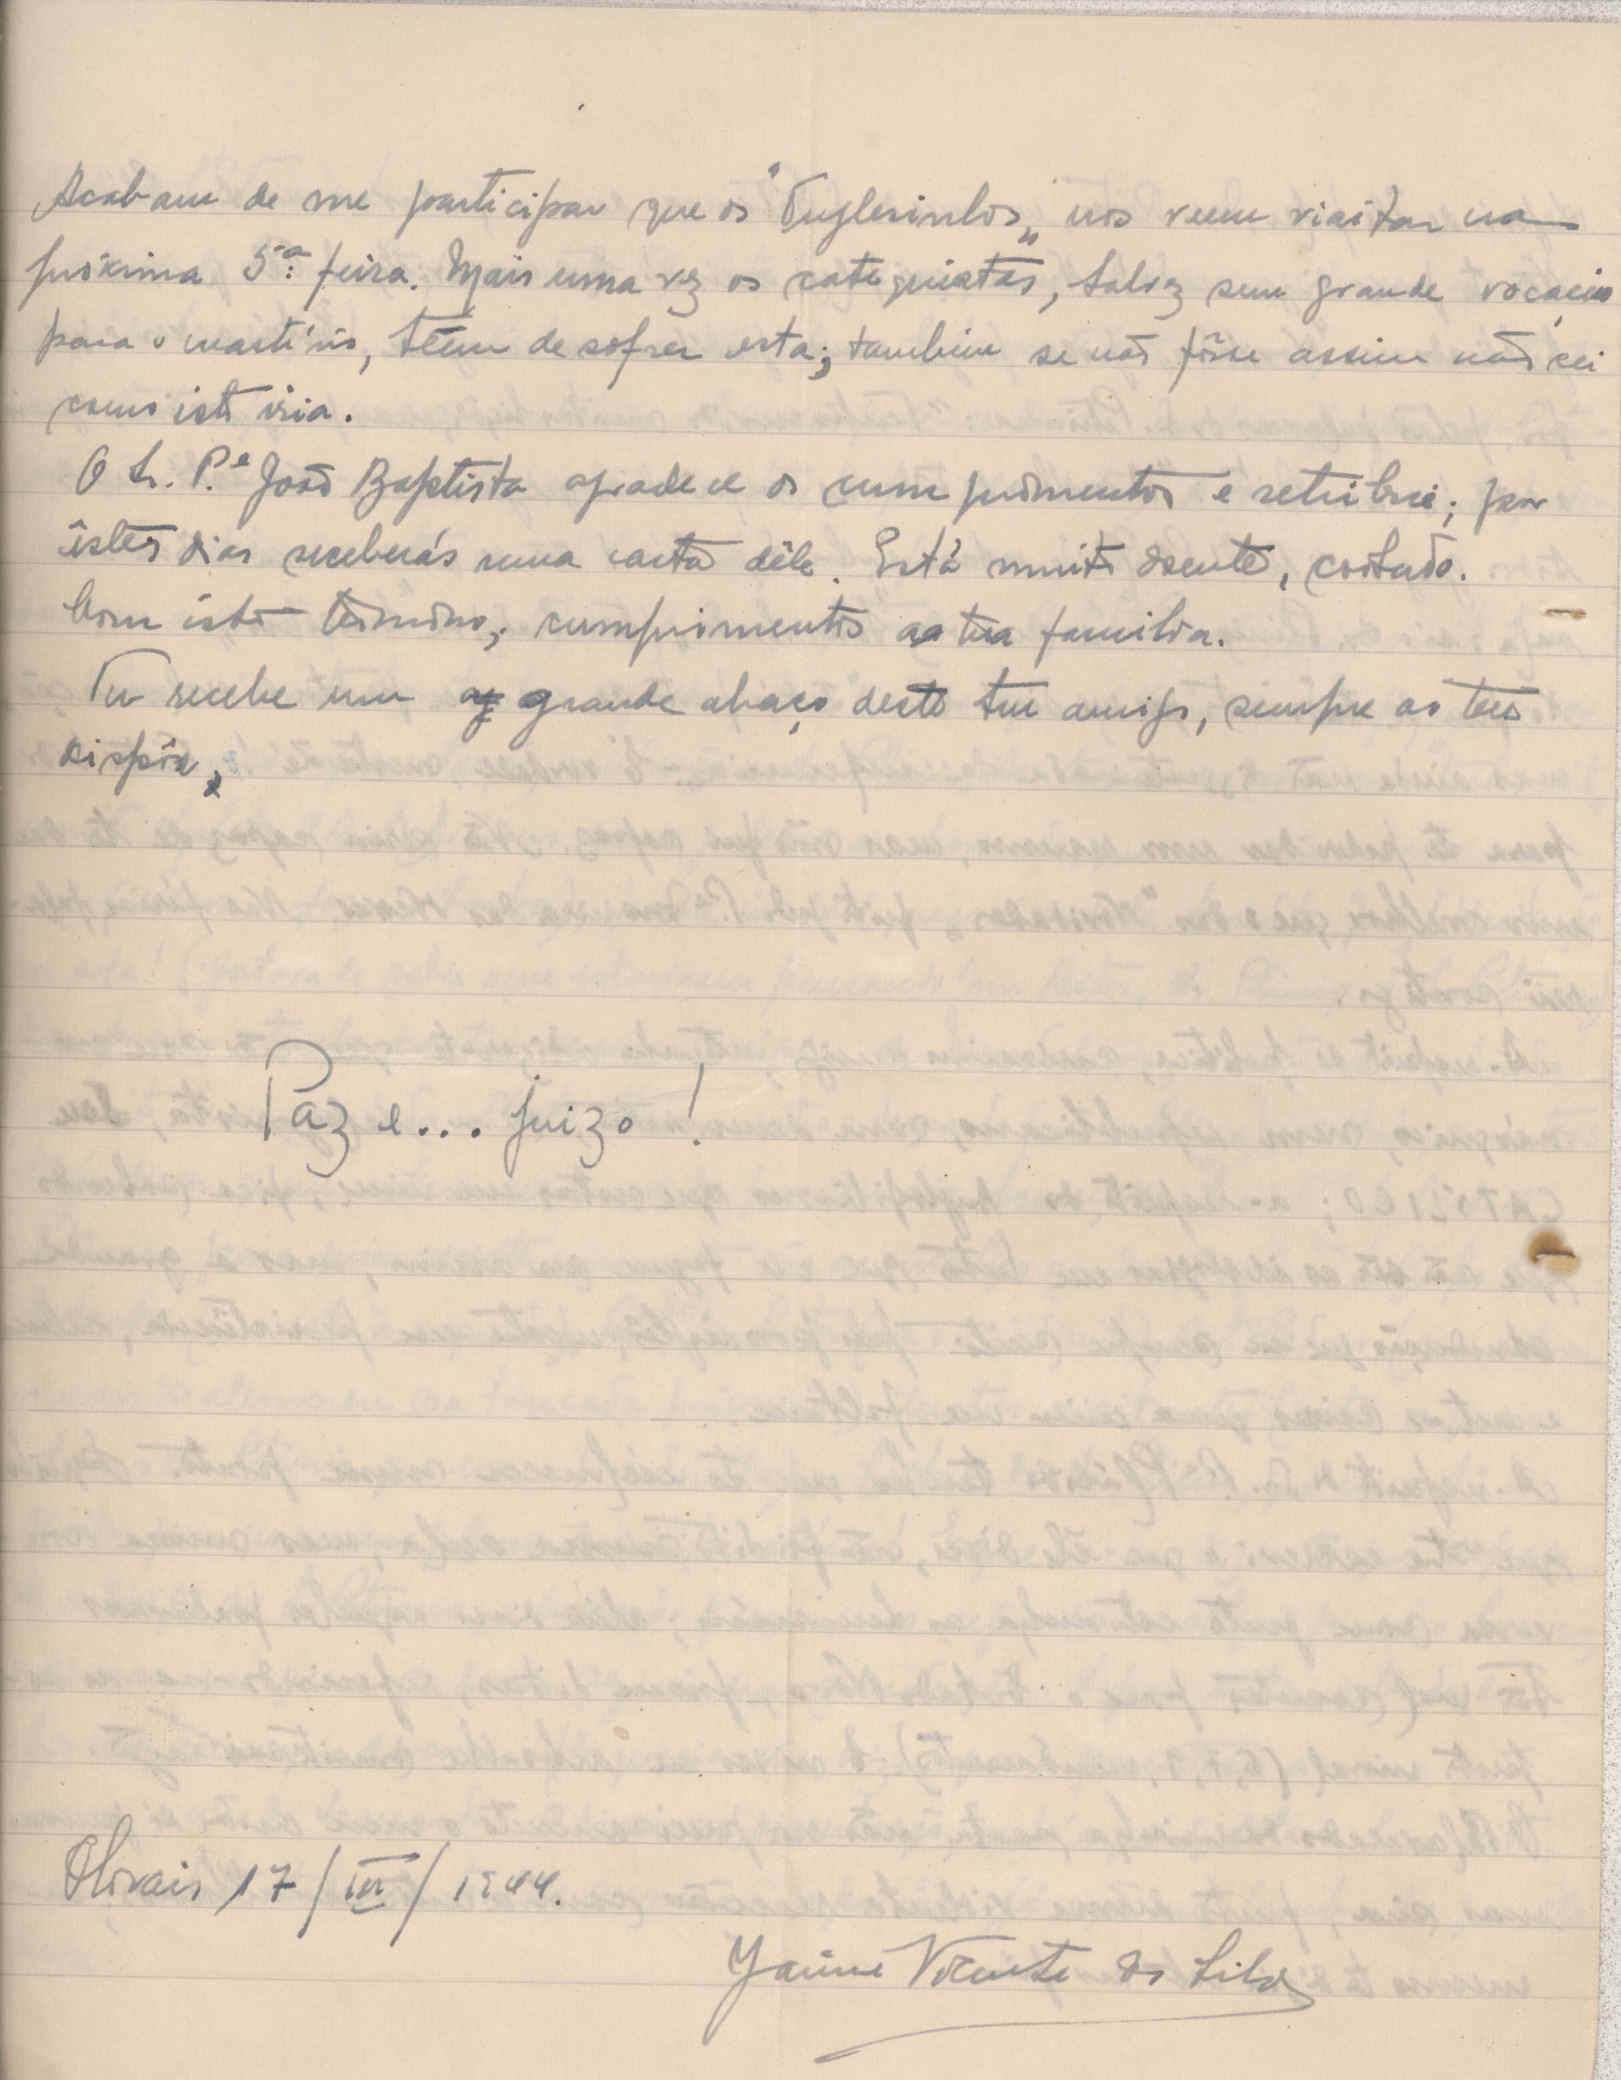 Acabam de me participar que os "Inglesinhos" nos veem visitar na
próxima 5.ª feira. Mais uma vez os catequistas, talvez sem grande vocação
para o martírio, têem de sofrer esta; tambem se não fôsse assim não sei
como isto iria.
O Sr. P.e João Baptista agradece os cumprimentos e retribui; por
êstes dias receberás uma carta dêle. Está muito doente, coitado.
Com isto termino, cumprimentos a tua familia.
Tu recebe um grande abraço deste teu amigo, sempre ao teu
dispôr,
Paz e... juizo!
Olivais 17/III/1944.
Jaime Vicente da Silva